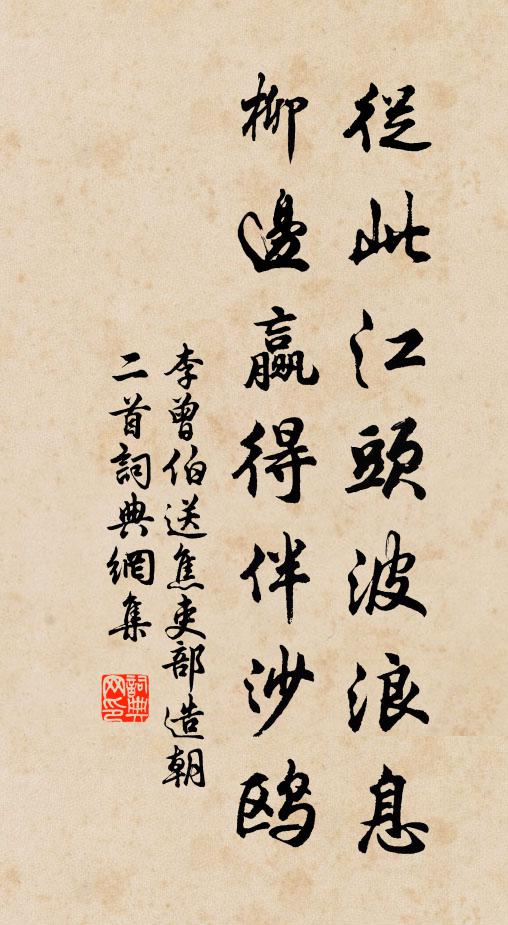 從此江頭波浪息
柳邊贏得伴沙鸥
李曾伯送焦吏部造朝
二首詞典網集
詞典
网印